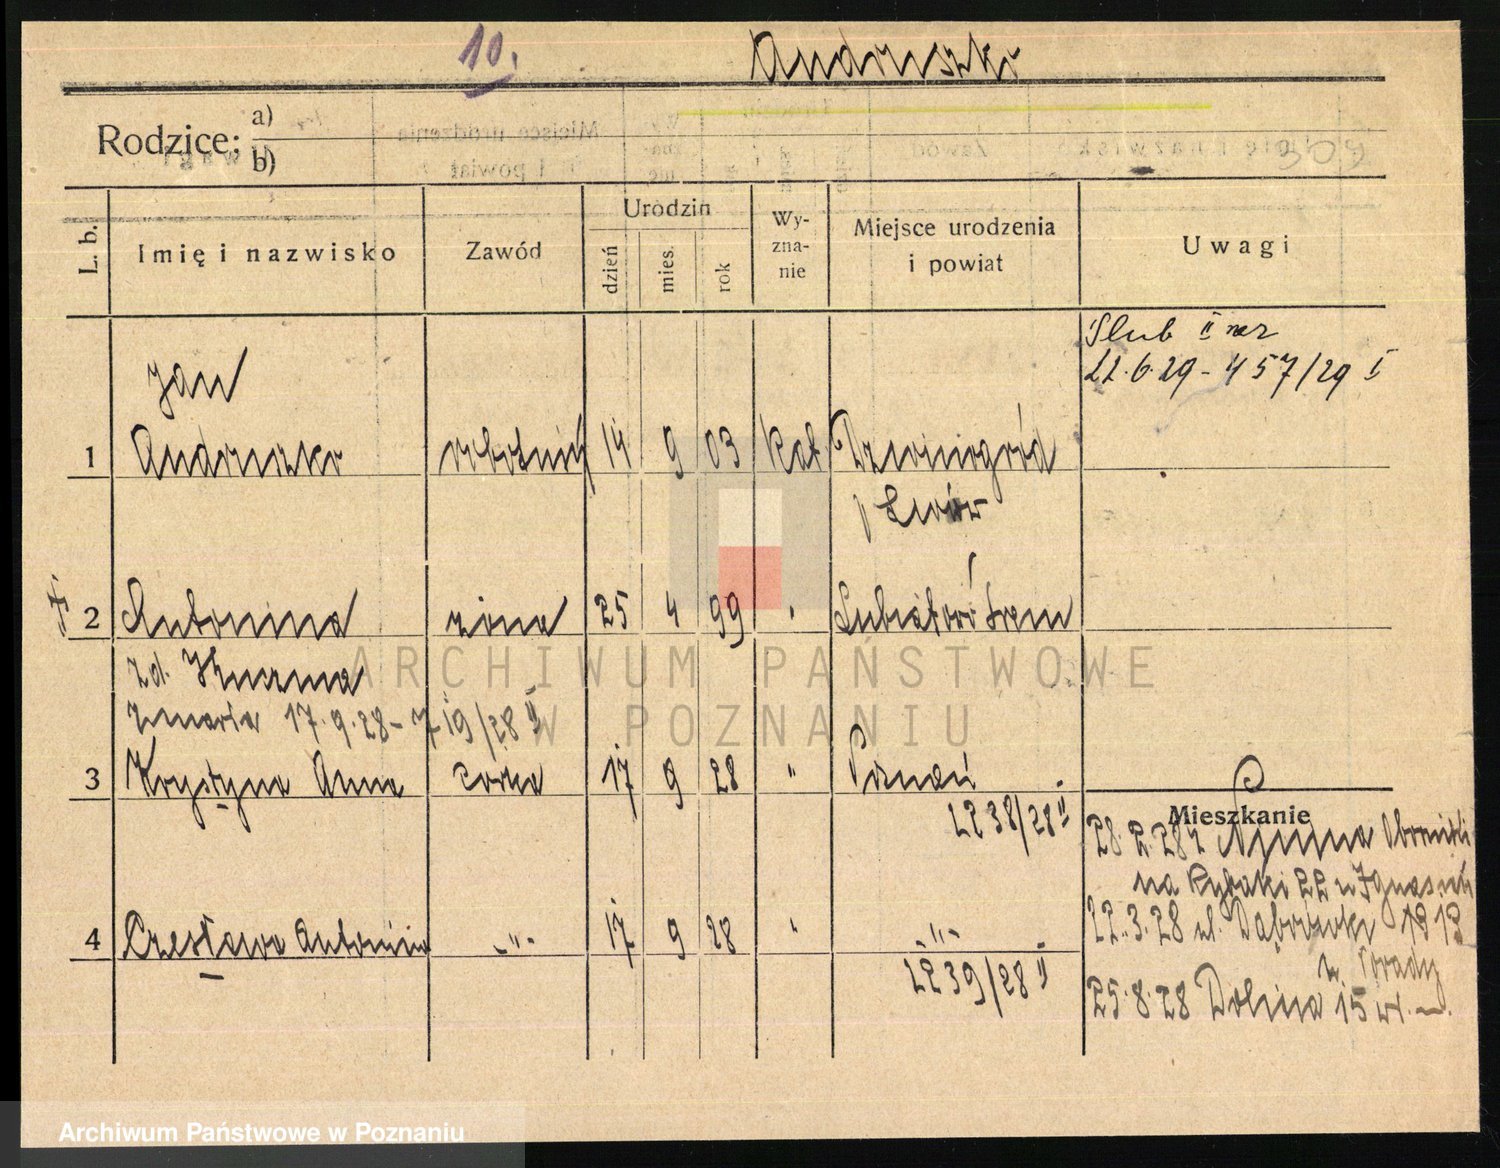 10.
Andruszko
Rodzice: a)
b)
L. b.
Imię i nazwisko
Zawód
Urodzin
dzień
mies.
rok
Wy-
zna-
nie
Miejsce urodzenia
i powiat
Uwagi
Ślub II raz
22.6.29 - 457/29 I
Jan
1 Andruszko robotnik 14 9 03 kat
Lwów
2 Antonina żona 25 4 99 "
zd.
zmarła 17.9.28 - 719/28 II
3 Krystyna Anna córka 17 9 28 " Poznań
2238/28 II
Mieszkanie
28.2.28 z
na Rybaki 22 u
4 Czesława Antonina -"- 17 9 28 " -"-
2239/28 II
22.3.28 ul. Dąbrowski
25.8.28 Dolina 15 wł.
ARCHIWUM PAŃSTWOWE
W POZNANIU
Archiwum Państwowe w Poznaniu